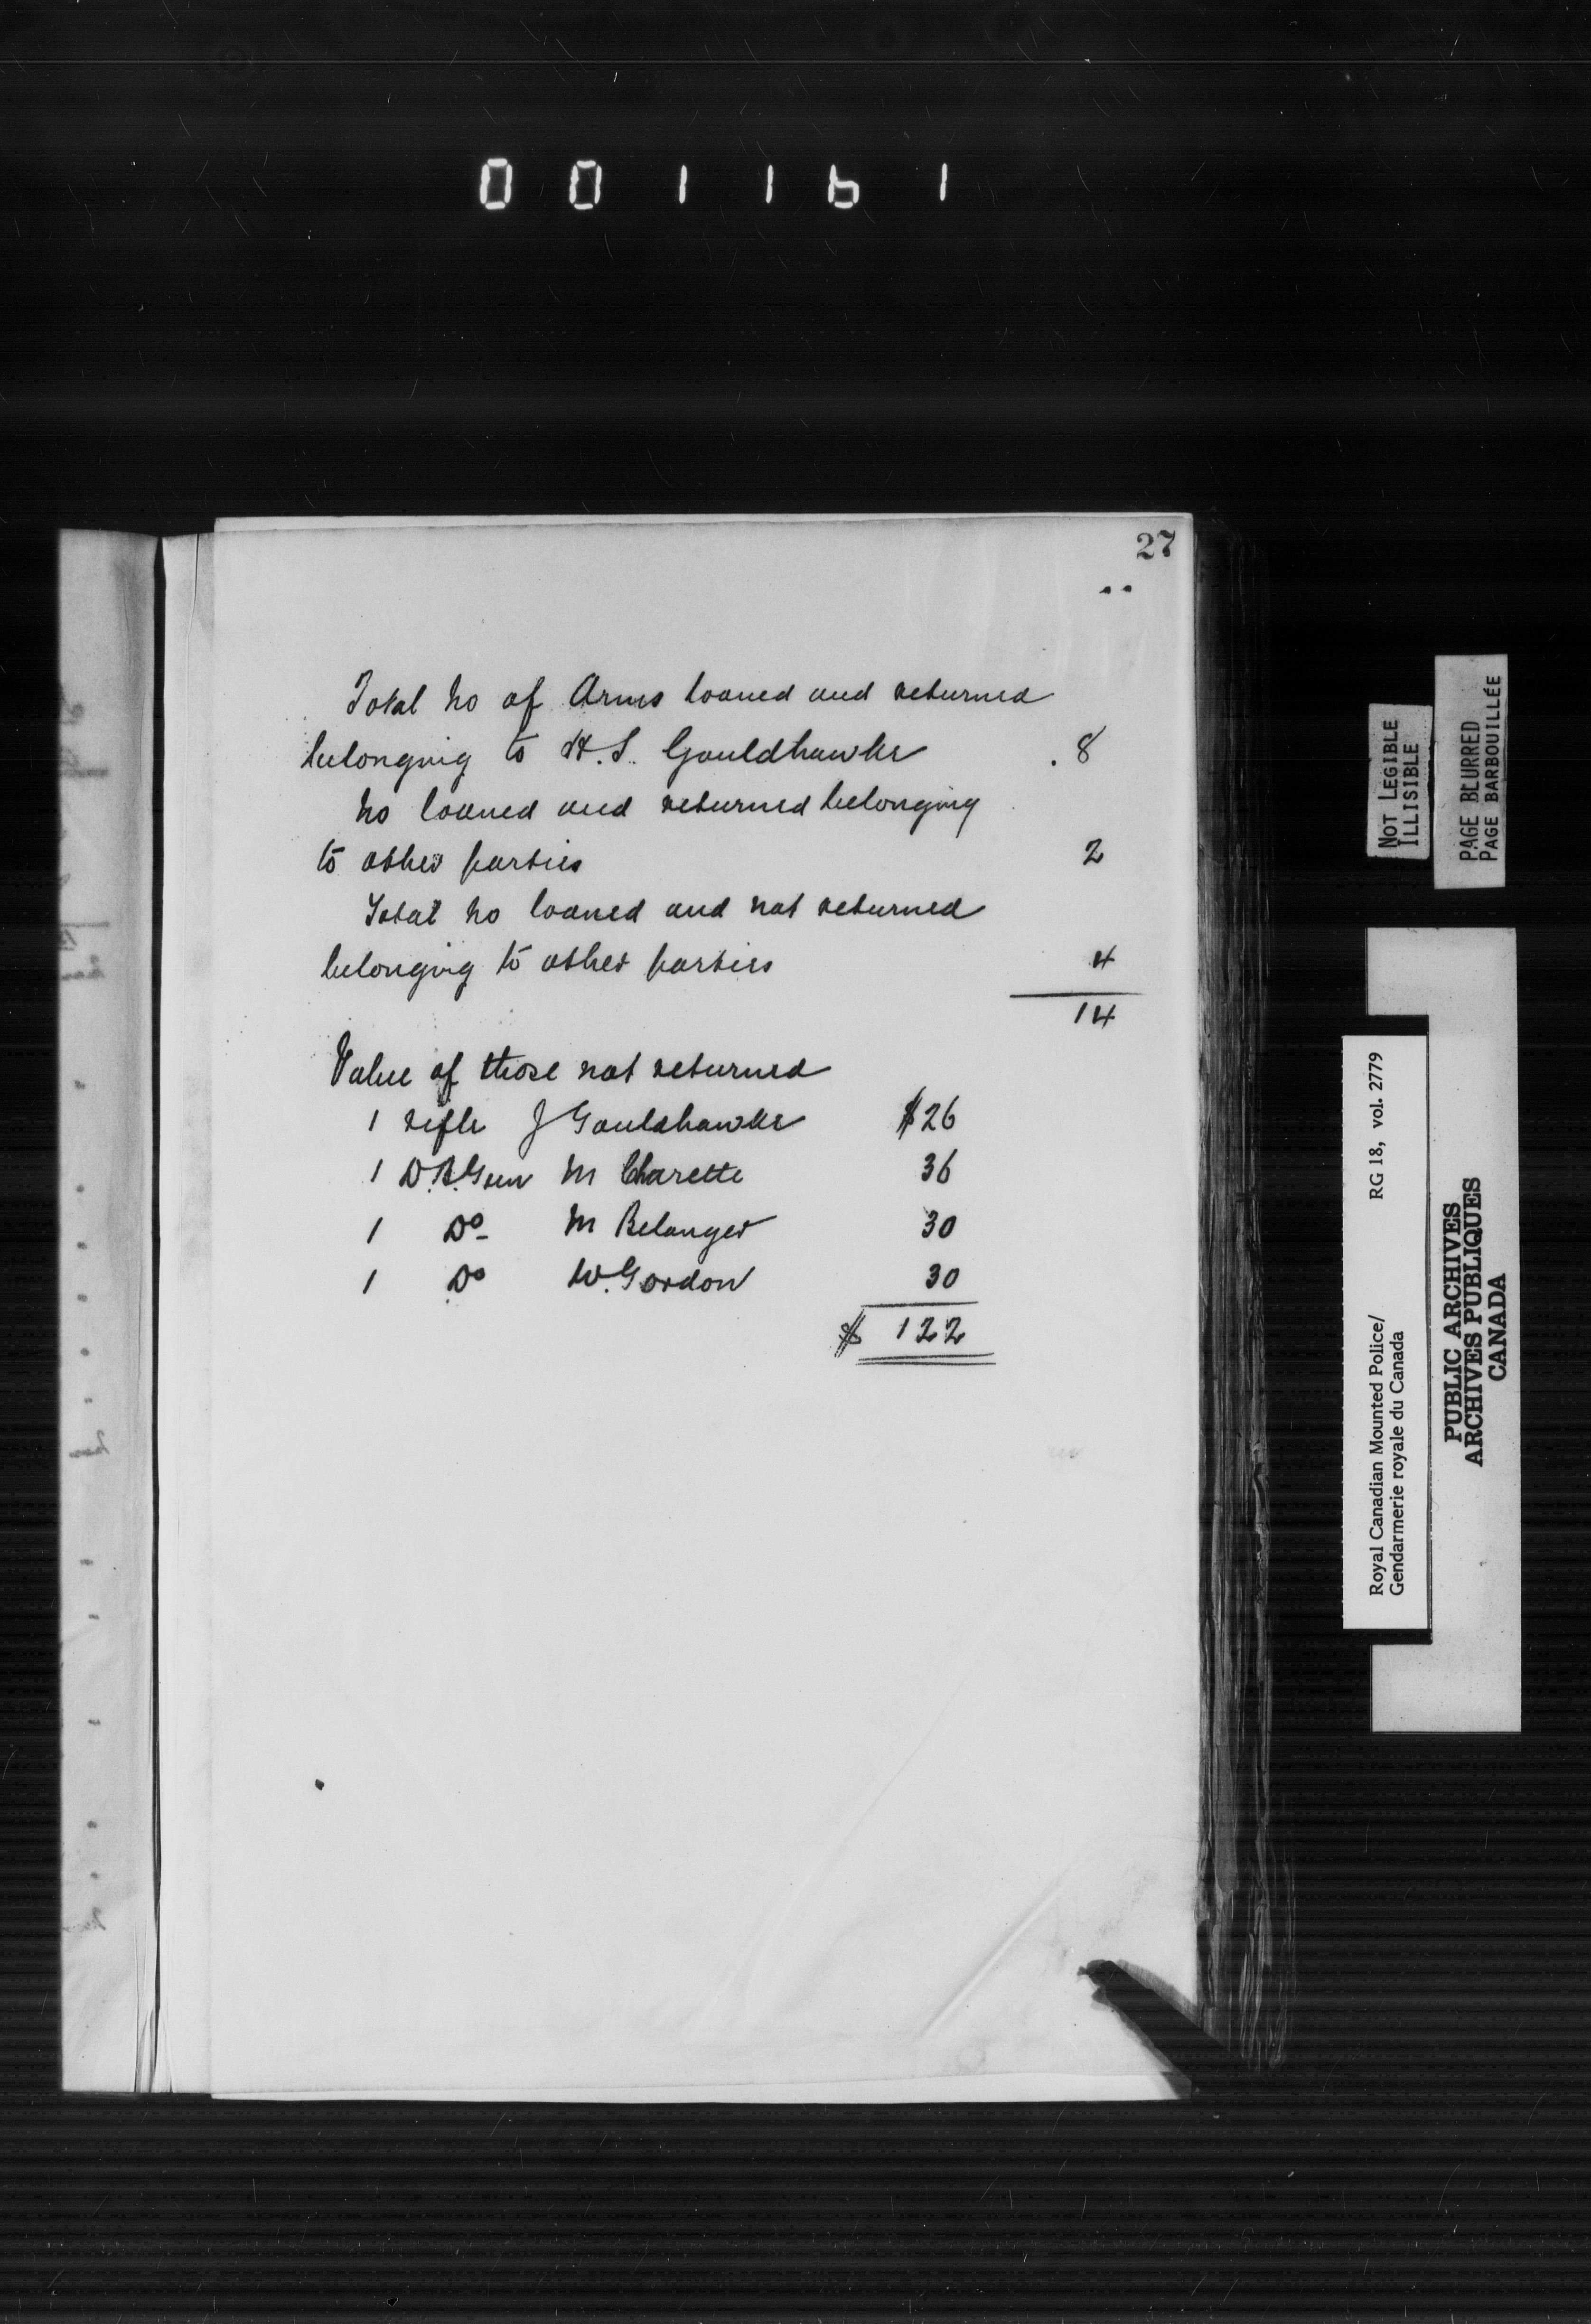 001161
27
Total No of Arms loaned and returned
belonging to H.S. Gouldhawke 8
No loaned and returned belonging
to other parties 2
Total No loaned and not returned
belonging to other parties 4
14
Value of those not returned
1 rifle J Gouldhawke $26
1 D.B. Gun M Charette 36
1 Do M Belanger 30
1 Do W. Gordon 30
$ 122
NOT LEGIBLE
ILLISIBLE
PAGE BLURRED
PAGE BARBOUILLÉE
Royal Canadian Mounted Police/ RG 18, vol. 2779
Gendarmerie royale du Canada
PUBLIC ARCHIVES
ARCHIVES PUBLIQUES
CANADA